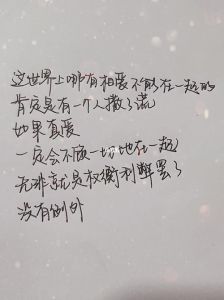 这世界上哪有相爱不能在一起的
肯定是有一个人撒了谎
如果真爱
一定会不顾一切地在一起
无非就是权衡利弊罢了
没有例外